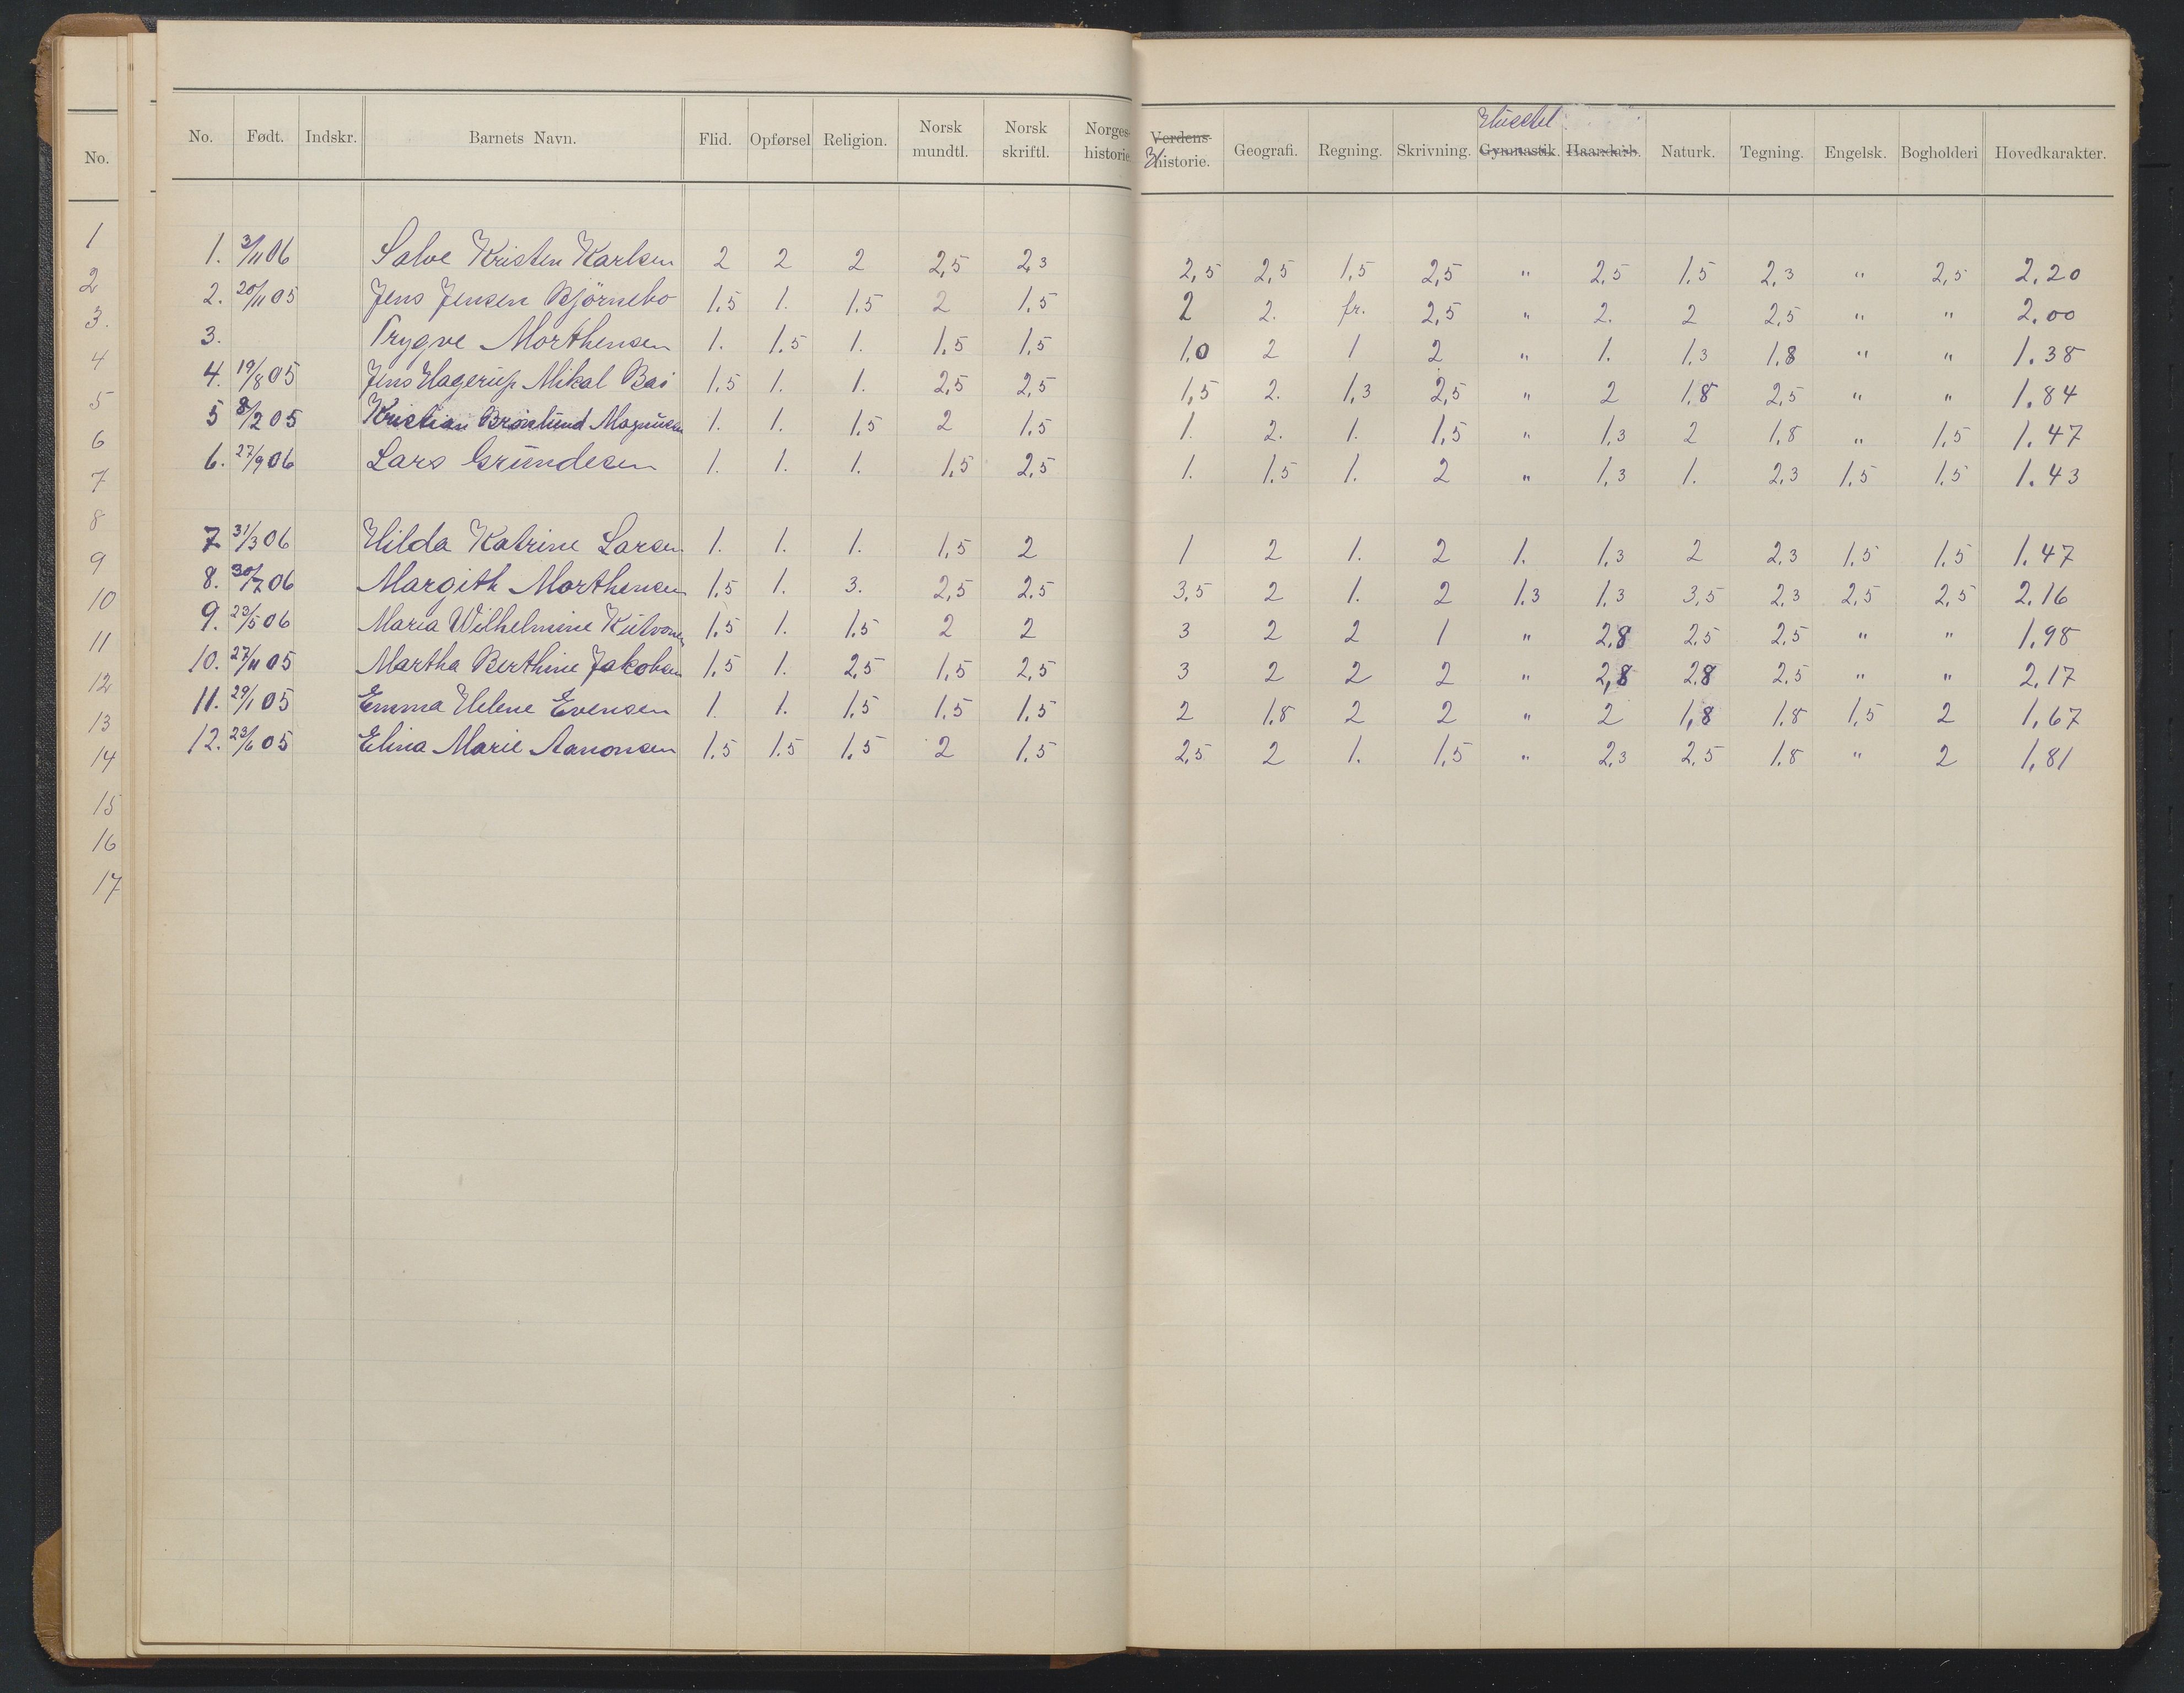 No. Født. Indskr. Barnets Navn. Flid. Opførsel Religion. Norsk mundtl. Norsk skriftl. Norges historie Verdens- Historie. Geografi. Regning. Skrivning. Gymnastik. Haandarb. Naturk. Tegning. Engelsk. Bogholderi Hovedkarakter.
1. 3/11 06 Salve Kristen Karlsen 2 2 2 2,5 2,3 2,5 2,5 1,5 2,5 " 2,5 1,5 2,3 " 2,5 2,20
2. 20/11 05 Jens Jensen Bjørnebo 1,5 1. 1,5 2 1,5 2 2. fr. 2,5 " 2. 2 2,5 " " 2.00
3. Trygve Morthensen 1. 1,5 1. 1,5 1,5 1,0 2 1 2 " 1. 1,3 1,8 " " 1.38
4. 19/8 05 Jens Hagerup Mikal Bai 1,5 1. 1. 2,5 2,5 1,5 2. 1,3 2,5 " 2 1,8 2,5 " " 1.84
5 8/2 05 Kristian Magnusen 1. 1. 1,5 2 1,5 1. 2. 1. 1,5 " 1,3 2 1,8 " 1,5 1.47
6. 27/9 06 Lars Grundesen 1. 1. 1. 1,5 2,5 1. 1,5 1. 2 " 1,3 1. 2,3 1,5 1,5 1.43
7 31/3 06 Hilda Katrine Larsen 1. 1. 1. 1,5 2 1 2 1. 2 1. 1,3 2 2,3 1,5 1,5 1.47
8. 30/7 06 Margith Morthensen 1,5 1. 3. 2,5 2,5 3,5 2 1. 2 1,3 1,3 3,5 2,3 2,5 2,5 2,16
9. 23/5 06 Maria Wilhelmine 1,5 1. 1,5 2 2 3 2 2 1 " 2,8 2,5 2,5 " " 1,98
10. 27/11 05 Martha Berthine Jakobsen 1,5 1. 2,5 1,5 2,5 3 2 2 2 " 2,8 2,8 2,5 " " 2,17
11. 29/1 05 Emma Helene Evensen 1. 1. 1,5 1,5 1,5 2 1,8 2 2 " 2 1,8 1,8 1,5 2 1,67
12. 23/6 05 Elina Marie Aanonsen 1,5 1,5 1,5 2 1,5 2,5 2 1. 1,5 " 2,3 2,5 1,8 " 2 1,81
No.
1
2
3.
4
5
6
7
8
9
10
11
12
13
14
15
16
17